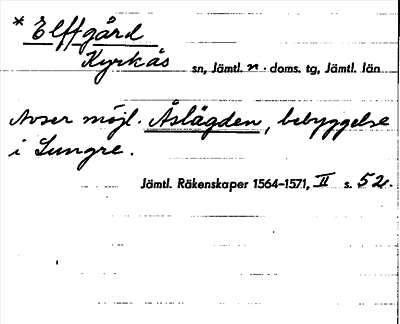 * Elffgård
Kyrkås sn, Jämtl. n. doms. tg, Jämtl. län
Avser möjl. Åslägden, bebyggelse
i Lungre.
Jämtl. Räkenskaper 1564–1571, II s. 52.